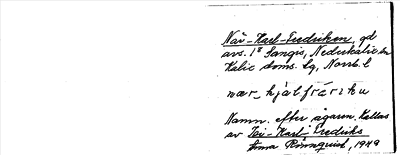 När-Karl-Fredriken, gd
avs. 1⁸ Sangis, Nederkalix sn
Kalix doms. sg, Norrb. l
nær_kjálfrériku
Namn. efter ägaren, Kallas
av När-Karl Fredriks
Anna Rönnquist, 1949